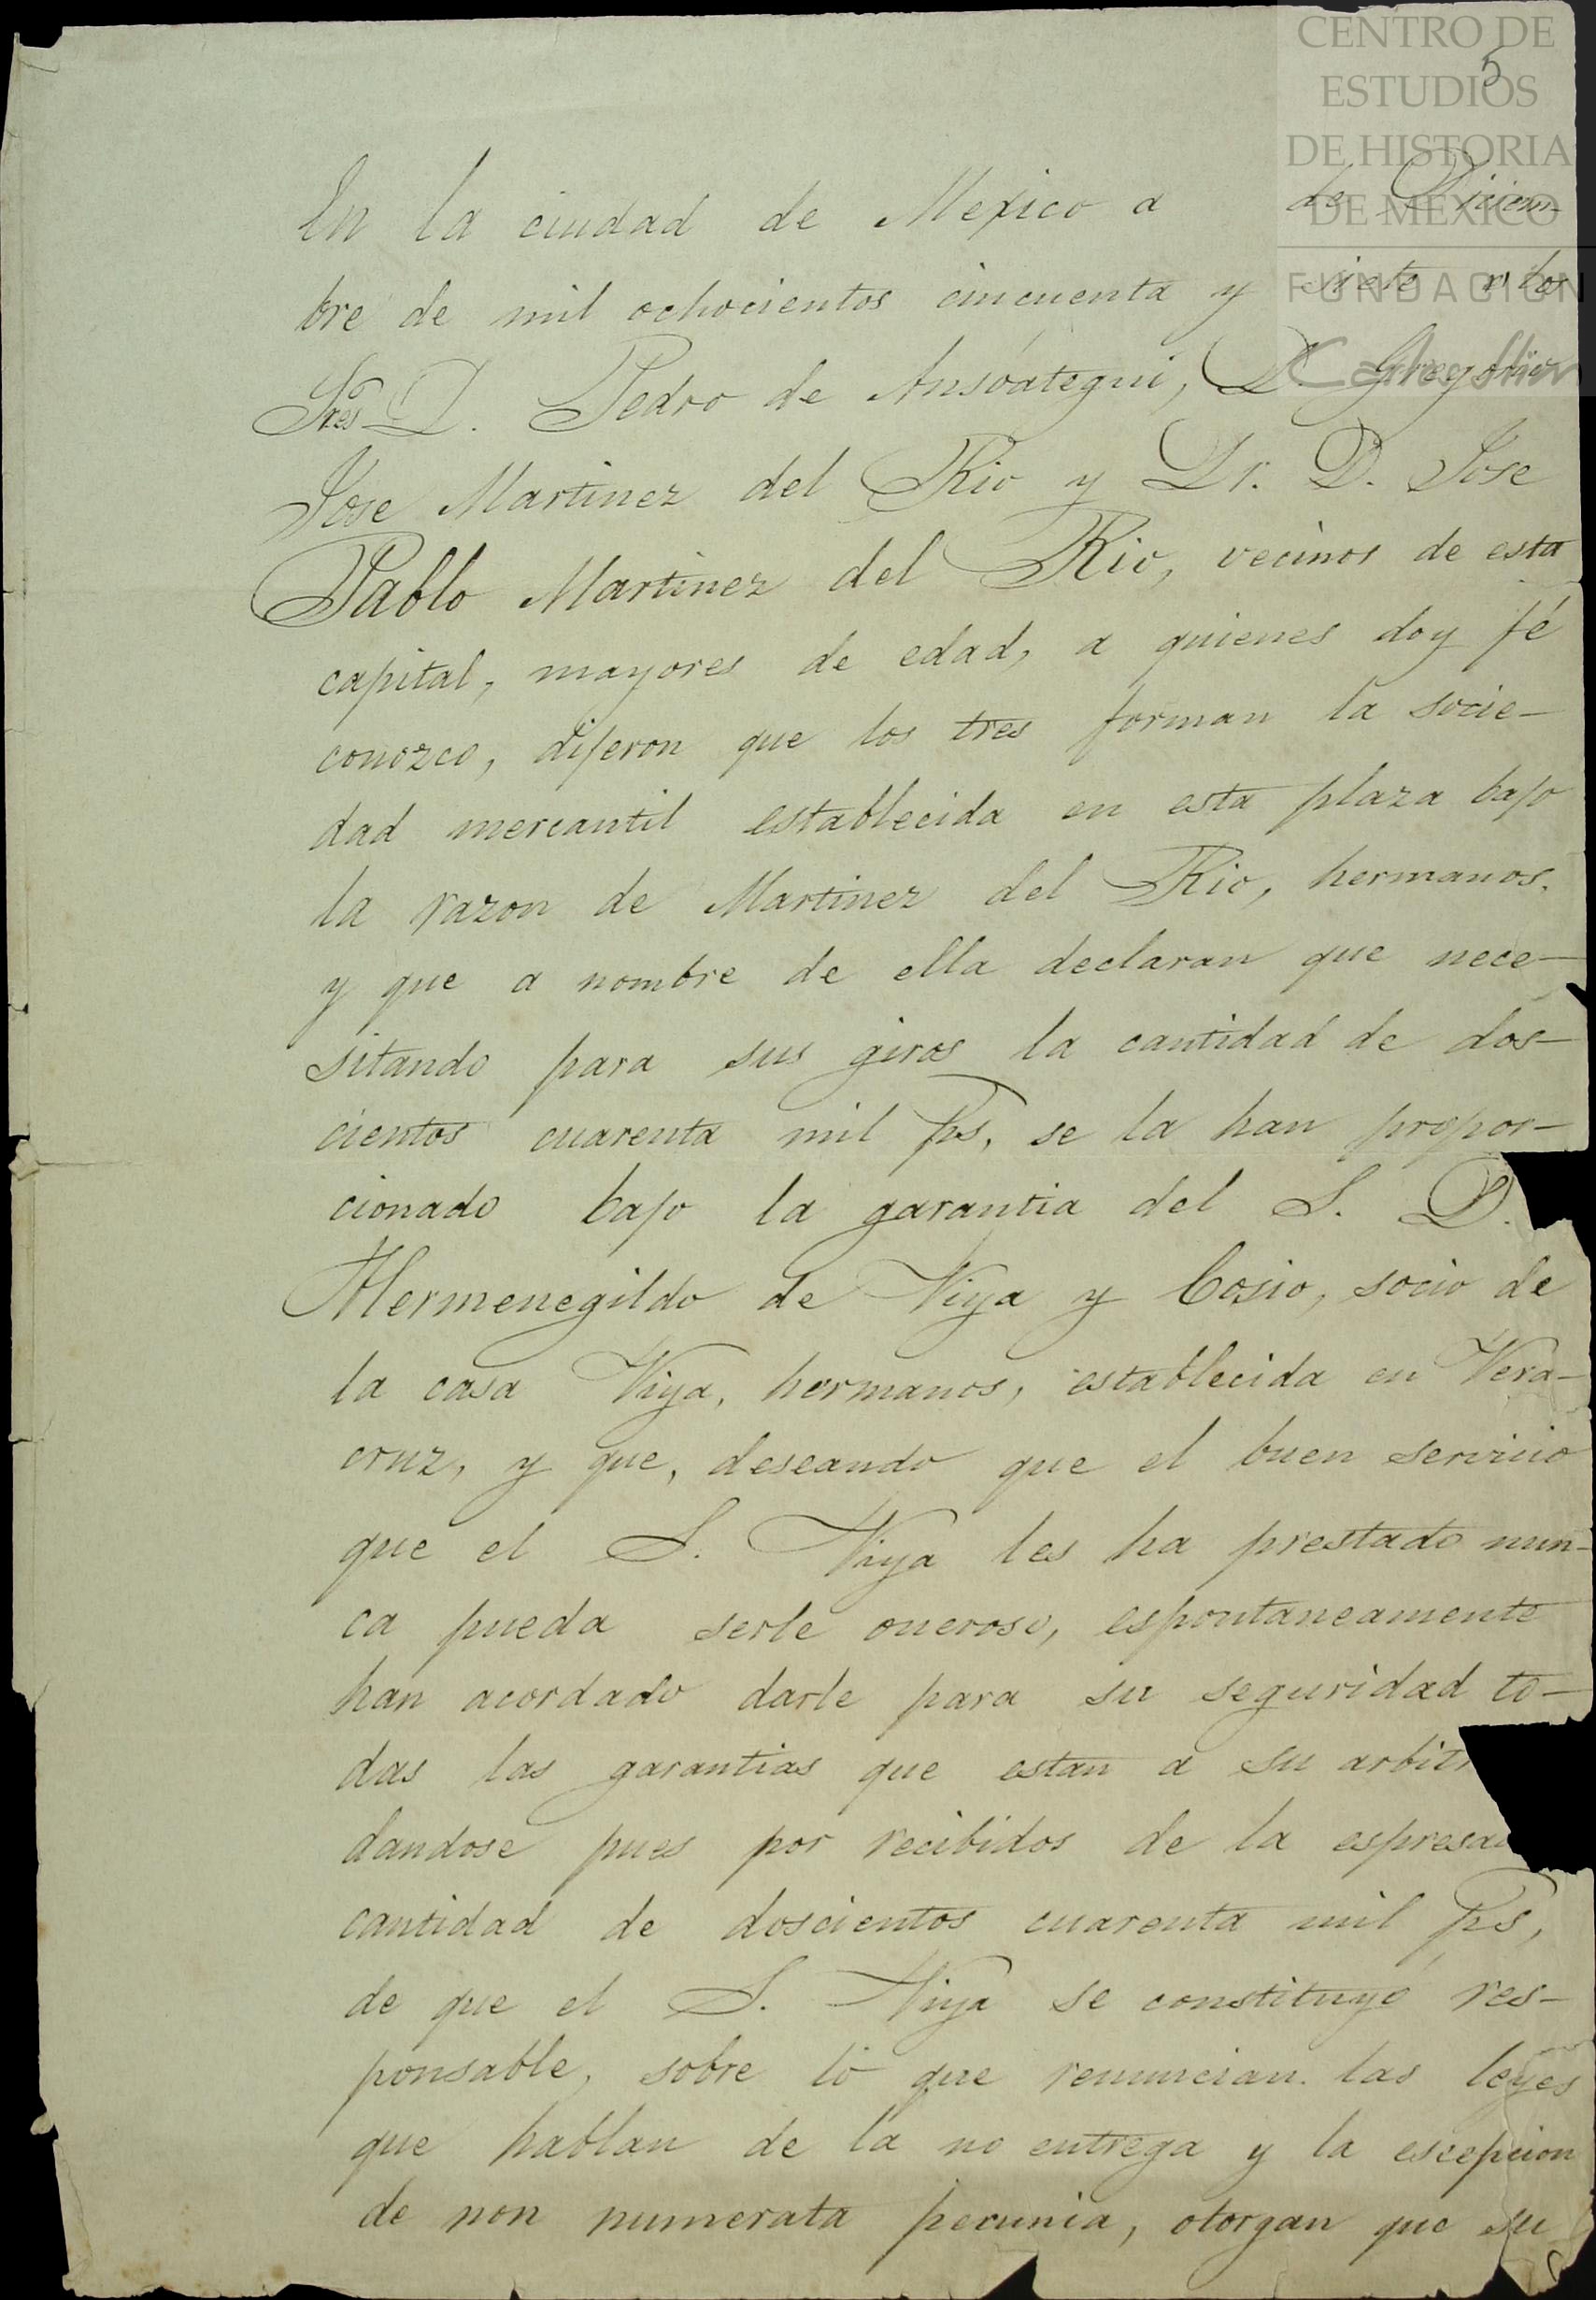 CENTRO DE
ESTUDIOS
DE HISTORIA
DE MÉXICO
FUNDACIÓN
5
En la ciudad de Mexico a de Diciem-
bre de mil ochocientos cincuenta y siete los
Sres D. Pedro de Ansoategui, D. Gregorio
Jose Martinez del Rio y Dr. D. Jose
Pablo Martinez del Rio, vecinos de esta
capital, mayores de edad, a quienes doy fé
conozco, dijeron que los tres forman la socie-
dad mercantil establecida en esta plaza bajo
la razon de Martinez del Rio, hermanos,
y que a nombre de ella declaran que nece-
sitando para sus giros la cantidad de dos-
cientos cuarenta mil ps, se la han propor-
cionado bajo la garantia del S. D.
Hermenegildo de Viya y Cosio, socio de
la casa Viya, hermanos, establecida en Vera-
cruz, y que, deseando que el buen servicio
que el S. Viya les ha prestado nun-
ca pueda serle oneroso, espontaneamente
han acordado darle para su seguridad to-
das las garantias que estan a su arbitr
dandose pues por recibidos de la espresa
cantidad de doscientos cuarenta mil ps,
de que el S. Viya se constituyó res-
ponsable, sobre lo que renuncian las leyes
que hablan de la no entrega y la escepcion
de non numerata pecunia, otorgan que su